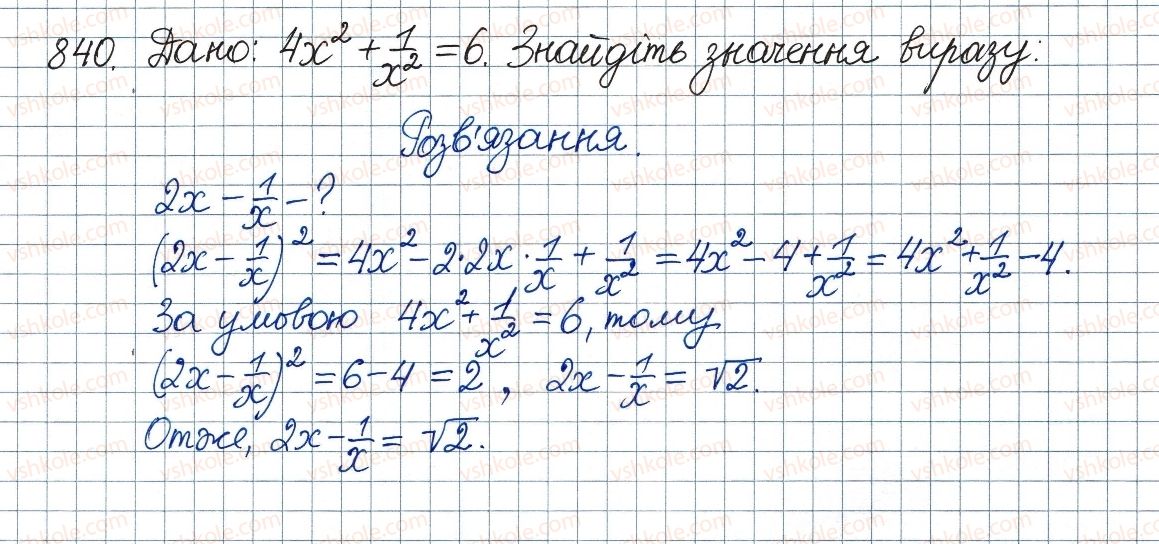 840. Дано: 4x² + 1/x² = 6. Знайдіть значення виразу:
Розв'язання.
2x - 1/x - ?
(2x - 1/x)² = 4x² - 2·2x · 1/x + 1/x² = 4x² - 4 + 1/x² = 4x² + 1/x² - 4.
За умовою 4x² + 1/x² = 6, тому
(2x - 1/x)² = 6 - 4 = 2, 2x - 1/x = √2.
Отже, 2x - 1/x = √2.